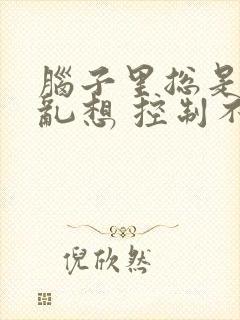 腦子里總是
亂想 控制不
倪欣然